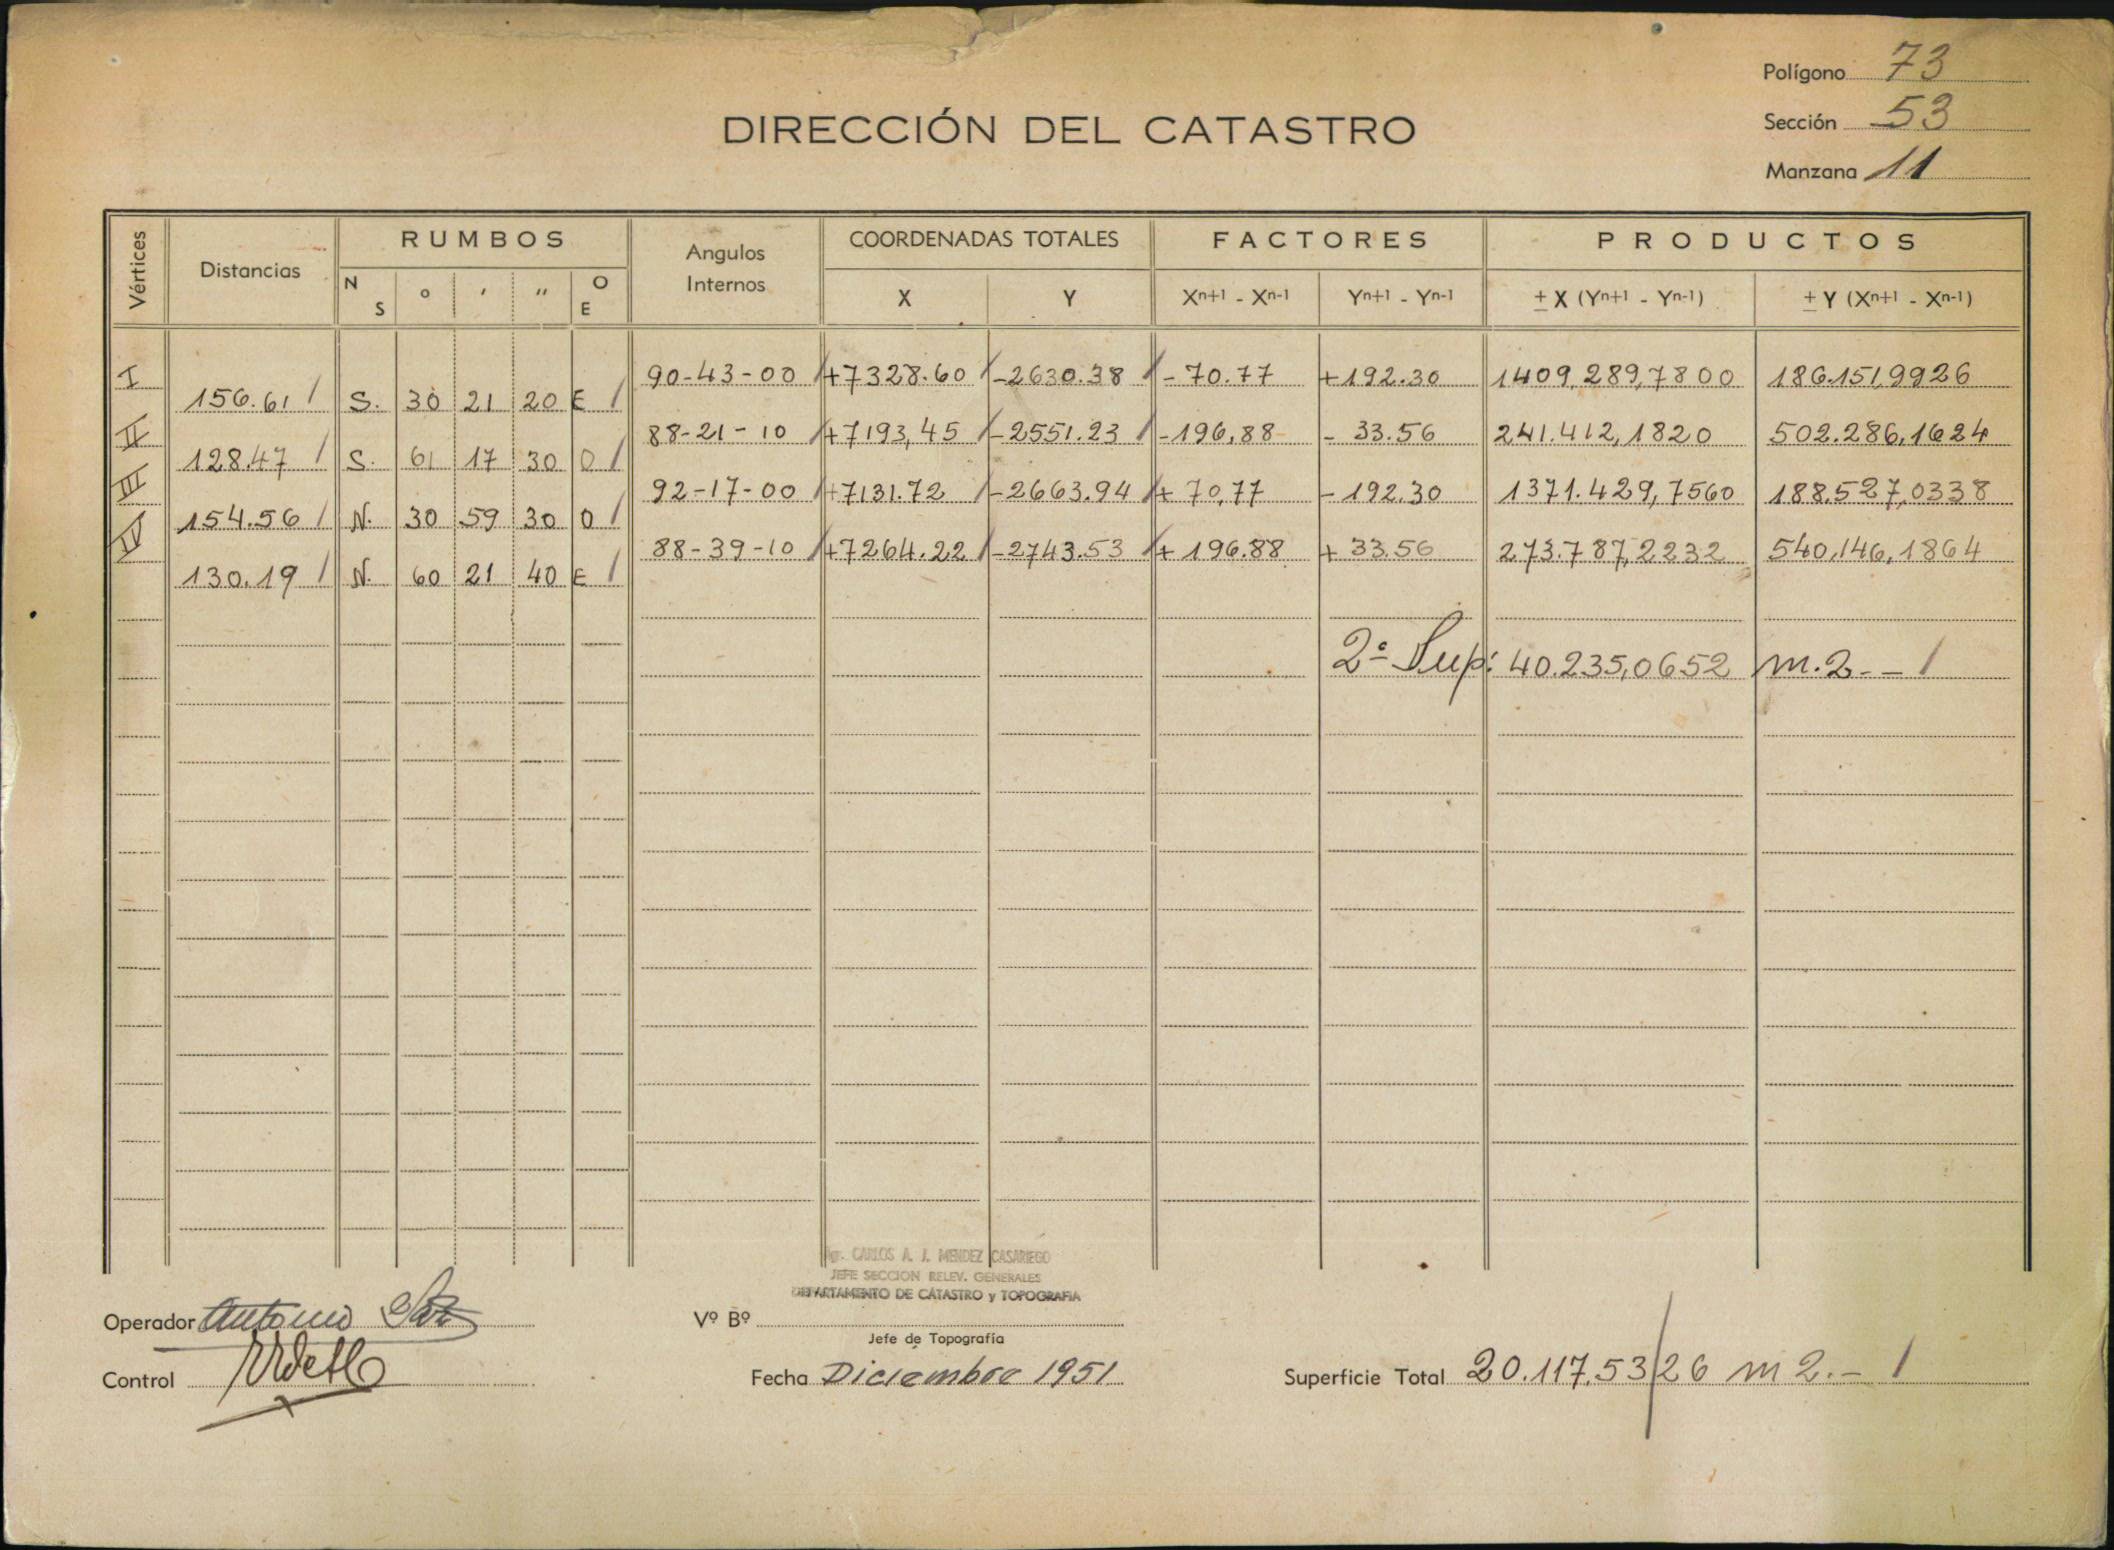 Polígono 73
DIRECCIÓN DEL CATASTRO
Sección 53
Manzana 11
Vértices Distancias RUMBOS Angulos Internos COORDENADAS TOTALES FACTORES PRODUCTOS
N S ° ' " O E X Y Xn+1 - Xn-1 Yn+1 - Yn-1 ± X (Yn+1 - Yn-1) ± Y (Xn+1 - Xn-1)
I 90-43-00 +7328.60 -2630.38 -70.77 +192.30 1409.289,7800 186.151,9926
156.61 S. 30 21 20 E
II 88-21-10 +7193,45 -2551.23 -196,88 -33.56 241.412,1820 502.286,1624
128.47 S. 61 17 30 O
III 92-17-00 +7131.72 -2663.94 +70,77 -192.30 1371.429,7560 188.527,0338
154.56 N. 30 59 30 O
IV 88-39-10 +7264.22 -2743.53 +196.88 +33.56 273.787,2232 540,146,1864
130.19 N. 60 21 40 E
2ª Sup: 40.235,0652 m.2.-
CARLOS A. J. MENDEZ CASARIEGO
JEFE SECCION RELEV. GENERALES
DEPARTAMENTO DE CATASTRO y TOPOGRAFIA
Operador Antonio
Vº Bº
Jefe de Topografía
Control
Fecha Diciembre 1951
Superficie Total 20.117.53/26 m2.-